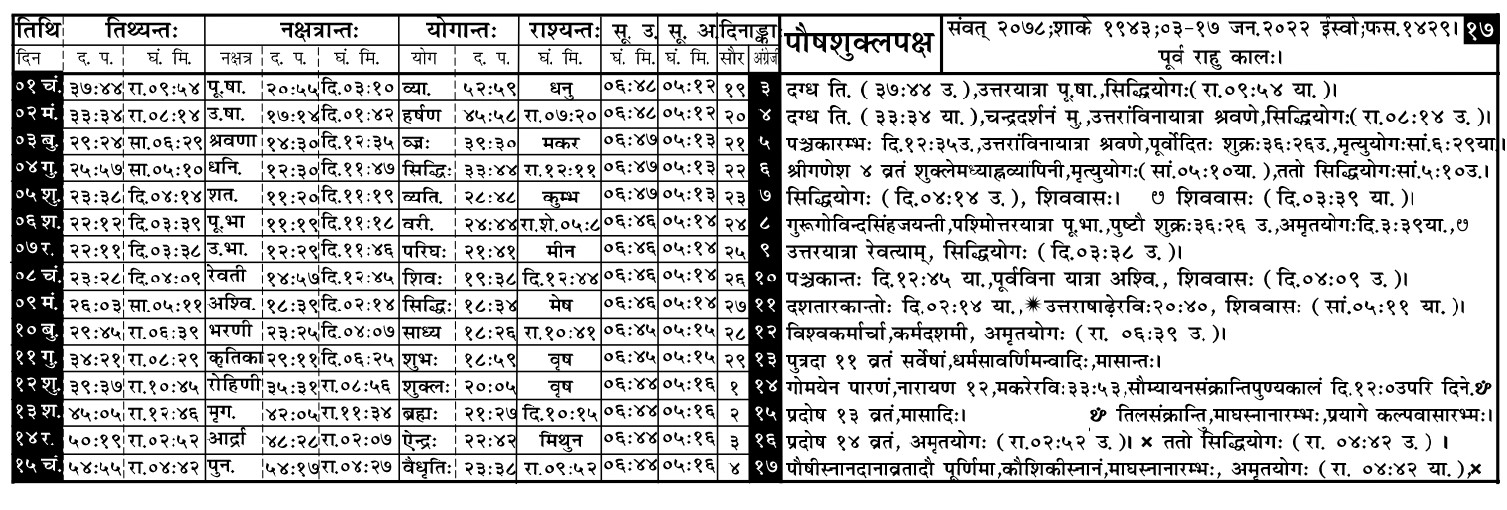 तिथि तिथ्यन्तः नक्षत्रान्तः योगान्तः राश्यन्तः सू. उ. सू. अ. दिनाङ्का पौषशुक्लपक्ष संवत् २०७८;शाके १९४३;०३-१७ जन.२०२२ ईस्वी;फस.१४२९। १७
दिन द. प. घं. मि. नक्षत्र द. प. घं. मि. योग द. प. घं. मि. घं. मि. घं. मि. सौर अंग्रेजी पूर्व राहु कालः।
०१ चं. ३७:४४ रा.०९:५४ पू.षा. २०:५५ दि.०३:१० व्या. ५२:५९ धनु ०६:४८ ०५:१२ १९ ३ दग्ध ति. ( ३७:४४ उ. ),उत्तरयात्रा पू.षा.,सिद्धियोगः( रा.०९:५४ या. )।
०२ मं. ३३:३४ रा.०८:१४ उ.षा. १७:१४ दि.०१:४२ हर्षण ४५:५८ रा.०७:२० ०६:४८ ०५:१२ २० ४ दग्ध ति. ( ३३:३४ या. ),चन्द्रदर्शनं मु.,उत्तरांविनायात्रा श्रवणे,सिद्धियोगः( रा.०८:१४ उ. )।
०३ बु. २९:२४ सा.०६:२९ श्रवणा १४:३० दि.१२:३५ व्ज्रः ३९:३० मकर ०६:४७ ०५:१३ २१ ५ पञ्चकारम्भः दि.१२:३५उ.,उत्तरांविनायात्रा श्रवणे,पूर्वोदितः शुक्रः३६:२६उ.,मृत्युयोगःसां.६:२९या।
०४ गु. २५:५७ सा.०५:१० धनि. १२:३० दि.११:४७ सिद्धिः ३३:४४ रा.१२:११ ०६:४७ ०५:१३ २२ ६ श्रीगणेश ४ व्रतं शुक्लेमध्याह्नव्यापिनी,मृत्युयोगः( सां.०५:१०या. ),ततो सिद्धियोगःसां.५:१०उ.।
०५ शु. २३:३८ दि.०४:१४ शत. ११:२० दि.११:१९ व्यति. २८:४८ कुम्भ ०६:४७ ०५:१३ २३ ७ सिद्धियोगः ( दि.०४:१४ उ. ), शिववासः। ७ शिववासः ( दि.०३:३९ या. )।
०६ श. २२:१२ दि.०३:३९ पू.भा ११:१९ दि.११:१८ वरी. २४:४४ रा.शे.०५:८ ०६:४६ ०५:१४ २४ ८ गुरूगोविन्दसिंहजयन्ती,पश्मिोत्तरयात्रा पू.भा.,पुष्टौ शुक्रः३६:२६ उ.,अमृतयोगःदि.३:३९या.,७
०७ र. २२:११ दि.०३:३८ उ.भा. १२:२९ दि.११:४६ परिघः २१:४१ मीन ०६:४६ ०५:१४ २५ ९ उत्तरयात्रा रेवत्याम्, सिद्धियोगः ( दि.०३:३८ उ. )।
०८ चं. २३:२८ दि.०४:०९ रेवती १४:५७ दि.१२:४५ शिवः १९:३८ दि.१२:४४ ०६:४६ ०५:१४ २६ १० पञ्चकान्तः दि.१२:४५ या.,पूर्वविना यात्रा अश्वि., शिववासः ( दि.०४:०९ उ. )।
०९ मं. २६:०३ सा.०५:११ अश्वि. १८:३९ दि.०२:१४ सिद्धिः १८:३४ मेष ०६:४६ ०५:१४ २७ ११ दशतारकान्तो: दि.०२:१४ या.,✷उत्तराषाढ़ेरविः२०:४०, शिववासः ( सां.०५:११ या. )।
१० बु. २९:४५ रा.०६:३९ भरणी २३:२५ दि.०४:०७ साध्य १८:२६ रा.१०:४१ ०६:४५ ०५:१५ २८ १२ विश्वकर्मार्चा,कर्मदशमी, अमृतयोगः ( रा. ०६:३९ उ. )।
११ गु. ३४:२१ रा.०८:२९ कृतिका २९:११ दि.०६:२५ शुभः १८:५९ वृष ०६:४५ ०५:१५ २९ १३ पुत्रदा ११ व्रतं सर्वेषां,धर्मसावर्णिमन्वादिः,मासान्तः।
१२ शु. ३९:३७ रा.१०:४५ रोहिणी ३५:३१ रा.०८:५६ शुक्लः २०:०५ वृष ०६:४४ ०५:१६ १ १४ गोमयेन पारणं,नारायण १२,मकरेरविः३३:५३,सौम्यायनसंक्रान्तिपुण्यकालं दि.१२:०उपरि दिने.
१३ श. ४५:०५ रा.१२:४६ मृग. ४२:०५ रा.११:३४ ब्रह्मः २१:२७ दि.१०:१५ ०६:४४ ०५:१६ २ १५ प्रदोष १३ व्रतं,मासादिः। तिलसंक्रान्ति,माघस्नानारम्भः,प्रयागे कल्पवासारभ्मः।
१४ र. ५०:१९ रा.०२:५२ आर्द्रा ४८:२८ रा.०२:०७ ऐन्द्रः २२:४२ मिथुन ०६:४४ ०५:१६ ३ १६ प्रदोष १४ व्रतं, अमृतयोगः ( रा.०२:५२ उ. )। × ततो सिद्धियोगः ( रा. ०४:४२ उ. ) ।
१५ चं. ५४:५५ रा.०४:४२ पुन. ५४:१७ रा.०४:२७ वैधृतिः २३:३८ रा.०९:५२ ०६:४४ ०५:१६ ४ १७ पौषीस्नानदानाव्रतादौ पूर्णिमा,कौशिकीस्नानं,माघस्नानारम्भः, अमृतयोगः ( रा. ०४:४२ या. ),×